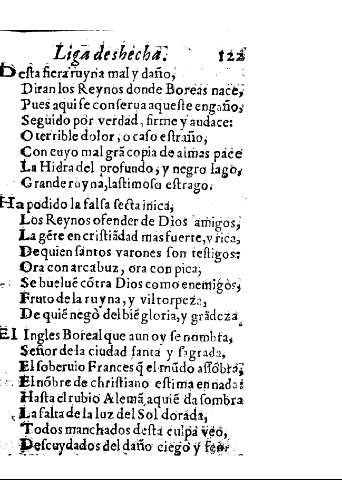 Liga deshecha. 122
Desta fiera ruyna mal y daño,
Diran los Reynos donde Boreas nace,
Pues aqui se conserua aqueste engaño,
Seguido por verdad, firme y audace:
O terrible dolor, o caso estraño,
Con cuyo mal grã copia de almas pace
La Hidra del profundo, y negro lago,
Grande ruyna, lastimoso estrago.
Ha podido la falsa secta inica,
Los Reynos ofender de Dios amigos,
La gẽte en cristiãdad mas fuerte, y rica,
De quien santos varones son testigos:
Ora con arcabuz, ora con pica,
Se buelue cõtra Dios como enemigos,
Fruto de la ruyna, y vil torpeza,
De quiẽ negò del biẽ gloria, y grãdeza
El Ingles Boreal que aun oy se nombra,
Señor de la ciudad santa y sagrada,
El soberuio Frances q̃ el mũdo assõbra,
El nõbre de christiano estima en nada:
Hasta el rubio Alemã, aquiẽ da sombra
La falta de la luz del Sol dorada,
Todos manchados desta culpa veo,
Descuydados del daño ciego y feo: